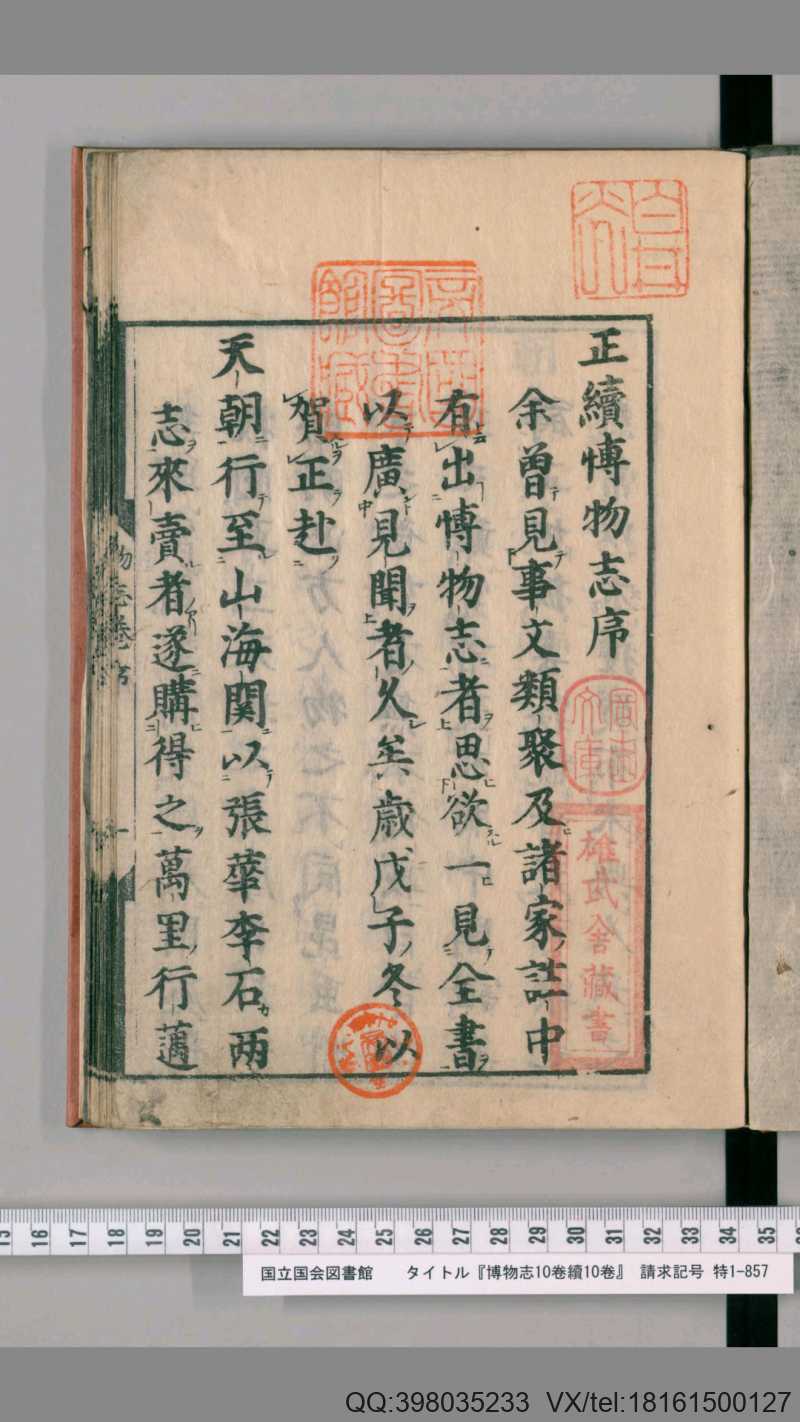 正續博物志序
余曾見事文類聚及諸家註中
有出博物志者思欲一見全書
以廣見聞者久矣歲戊子冬以
賀正赴
天朝行至山海関以張華李石兩
志來賣者遂購得之萬里行邁
雄武舍藏書
15 16 17 18 19 20 21 22 23 24 25 26 27 28 29 30 31 32 33 34 35
国立国会図書館 タイトル『博物志10巻續10巻』 請求記号 特1-857
QQ:398035233 VX/tel:18161500127